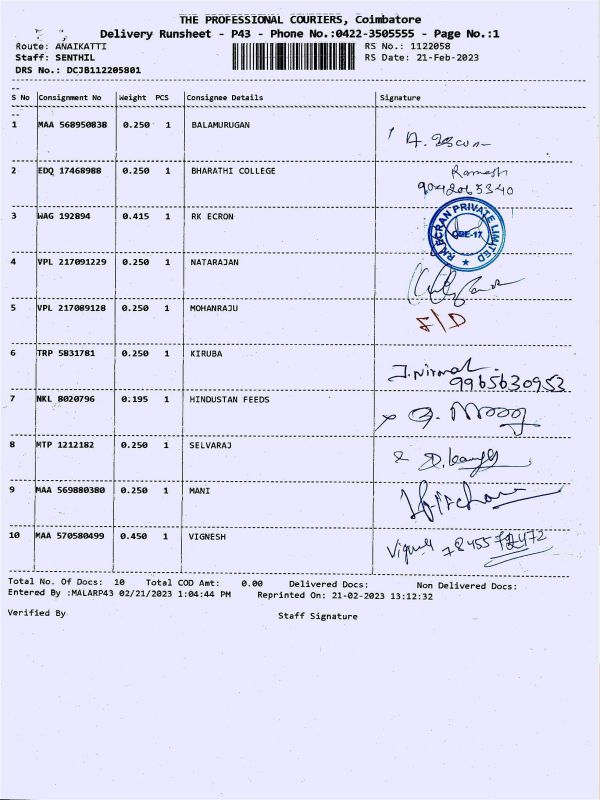 THE PROFESSIONAL COURIERS, Coimbatore
Delivery Runsheet - P43 - Phone No.:0422-3505555 - Page No.:1
Route: ANAIKATTI RS No.: 1122058
Staff: SENTHIL RS Date: 21-Feb-2023
DRS No.: DCJB112205801
S No Consignment No Weight PCS Consignee Details Signature
1 MAA 568950838 0.250 1 BALAMURUGAN
2 EDQ 17468988 0.250 1 BHARATHI COLLEGE Ramesh
9042065340
3 WAG 192894 0.415 1 RK ECRON
ECRAN PRIVATE LIMITED
4 VPL 217091229 0.250 1 NATARAJAN
5 VPL 217089128 0.250 1 MOHANRAJU F/D
6 TRP 5831781 0.250 1 KIRUBA J. Nirmal
9965630953
7 NKL 8020796 0.195 1 HINDUSTAN FEEDS
8 MTP 1212182 0.250 1 SELVARAJ
9 MAA 569880380 0.250 1 MANI
10 MAA 570580499 0.450 1 VIGNESH
Total No. Of Docs: 10 Total COD Amt: 0.00 Delivered Docs: Non Delivered Docs:
Entered By :MALARP43 02/21/2023 1:04:44 PM Reprinted On: 21-02-2023 13:12:32
Verified By Staff Signature